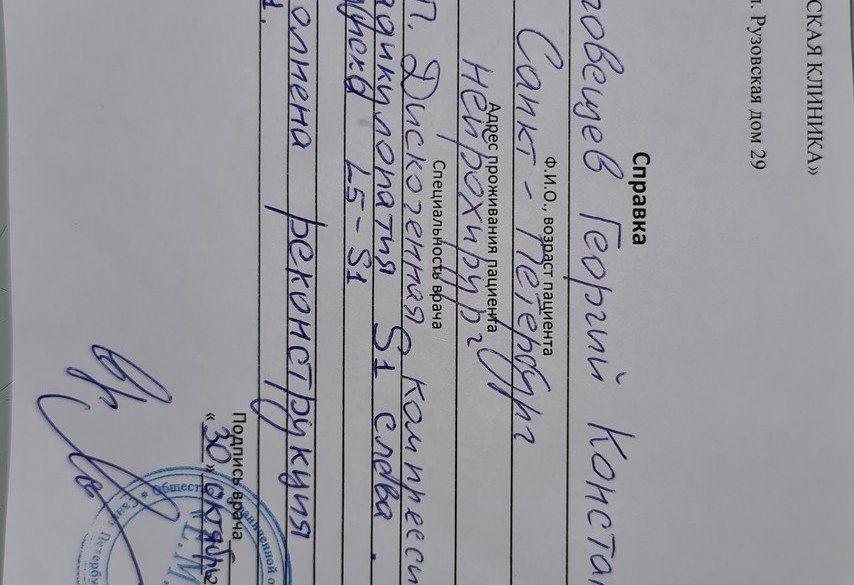 СКАЯ КЛИНИКА»
л. Рузовская дом 29
Справка
говещев Георгий Конста
Ф.И.О., возраст пациента
Санкт-Петербург
Адрес проживания пациента
нейрохирург
Специальность врача
П. Дискогенная компресси
адикулопатия S1 слева.
L5-S1
олнена реконструкция
Подпись врача
«30» октябр
Общест ограниченной о
Санкт Петербу
"Е.М.